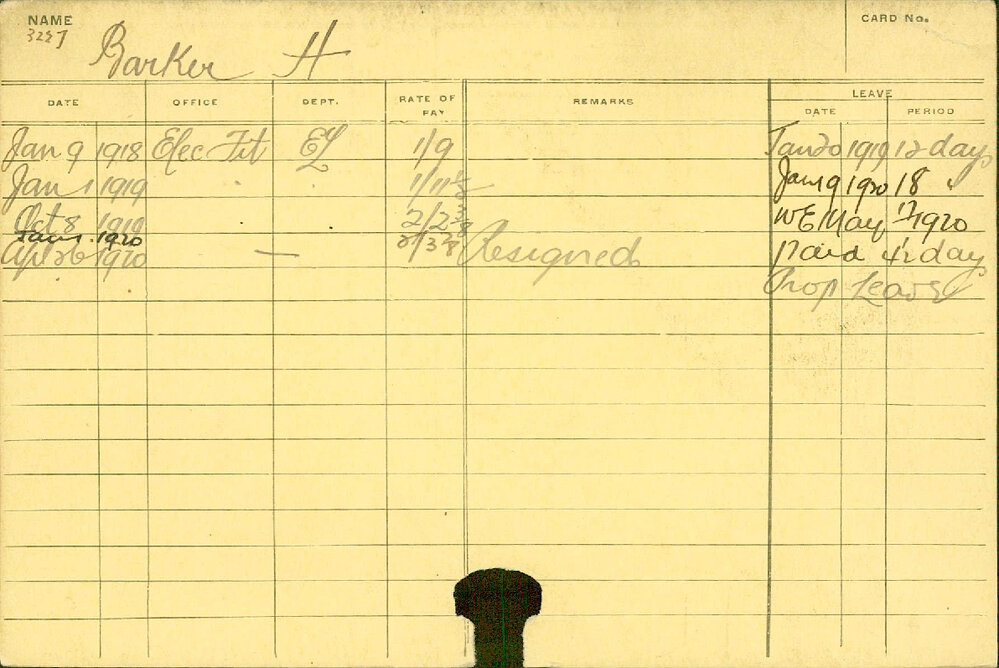 NAME
CARD No.
3237
Barker H
DATE OFFICE DEPT. RATE OF PAY REMARKS LEAVE
DATE PERIOD
Jan 9 1918 Elec Fit EL 1/9 Jan 20 1919 12 days
Jan 1 1919 1/11½ Jan 9 1920 18 "
Oct 8 1919 2/2⅜ WE May 1920
Jan 1 1920
Apl 26 1920 — 2/3⅜ Resigned Paid 4½ days
Prop Leave